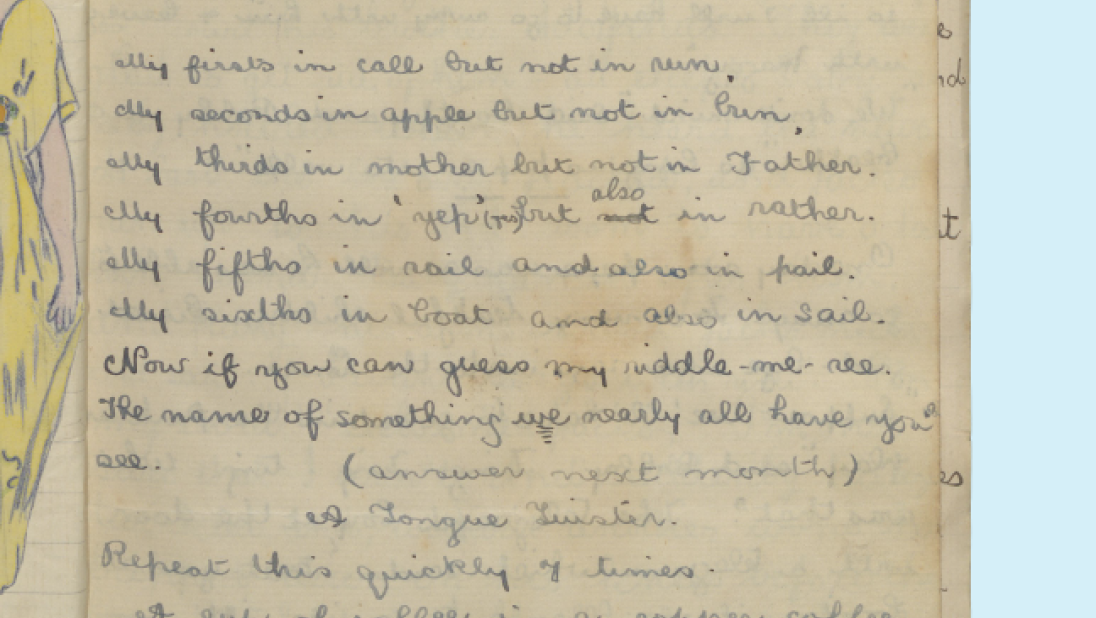 My firsts in call but not in run,
My seconds in apple but not in bun,
My thirds in mother but not in Father.
My fourths in 'yep' (yes) but not also in rather.
My fifths in rail and also in pail.
My sixths in boat and also in sail.
Now if you can guess my riddle-me-ree.
The name of something we nearly all have you'll
see. (answer next month)
A Tongue Twister.
Repeat this quickly 7 times.
A cup of coffee in a copper coffee